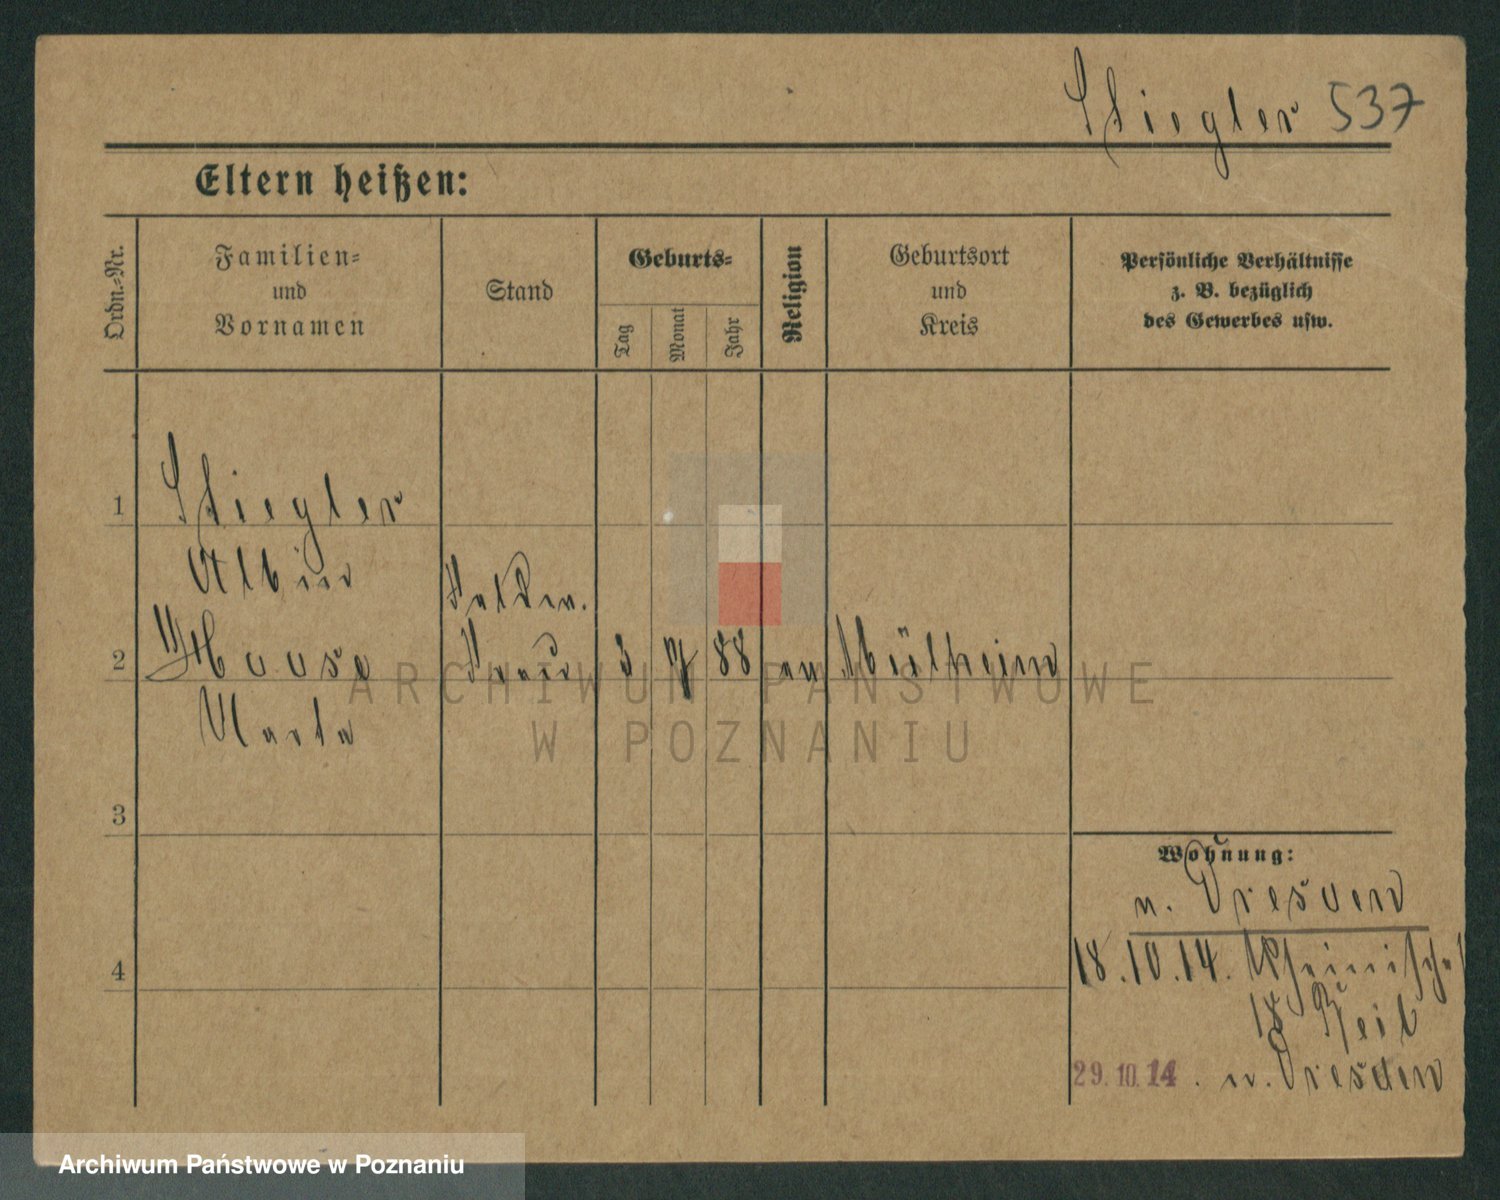 Stiegler 537
Eltern heißen:
Ordn.-Nr.
Familien-
und
Vornamen
Stand
Geburts-
Tag
Monat
Jahr
Religion
Geburtsort
und
Kreis
Persönliche Verhältnisse
z. B. bezüglich
des Gewerbes usw.
1
Stiegler
Albin
2
Haase
Marta
3
88
ev
Mülheim
3
4
Wohnung:
n. Dresden
18.10.14. Rheinische
18
29.10.14. n. Dresden
ARCHIWUM PAŃSTWOWE
W POZNANIU
Archiwum Państwowe w Poznaniu